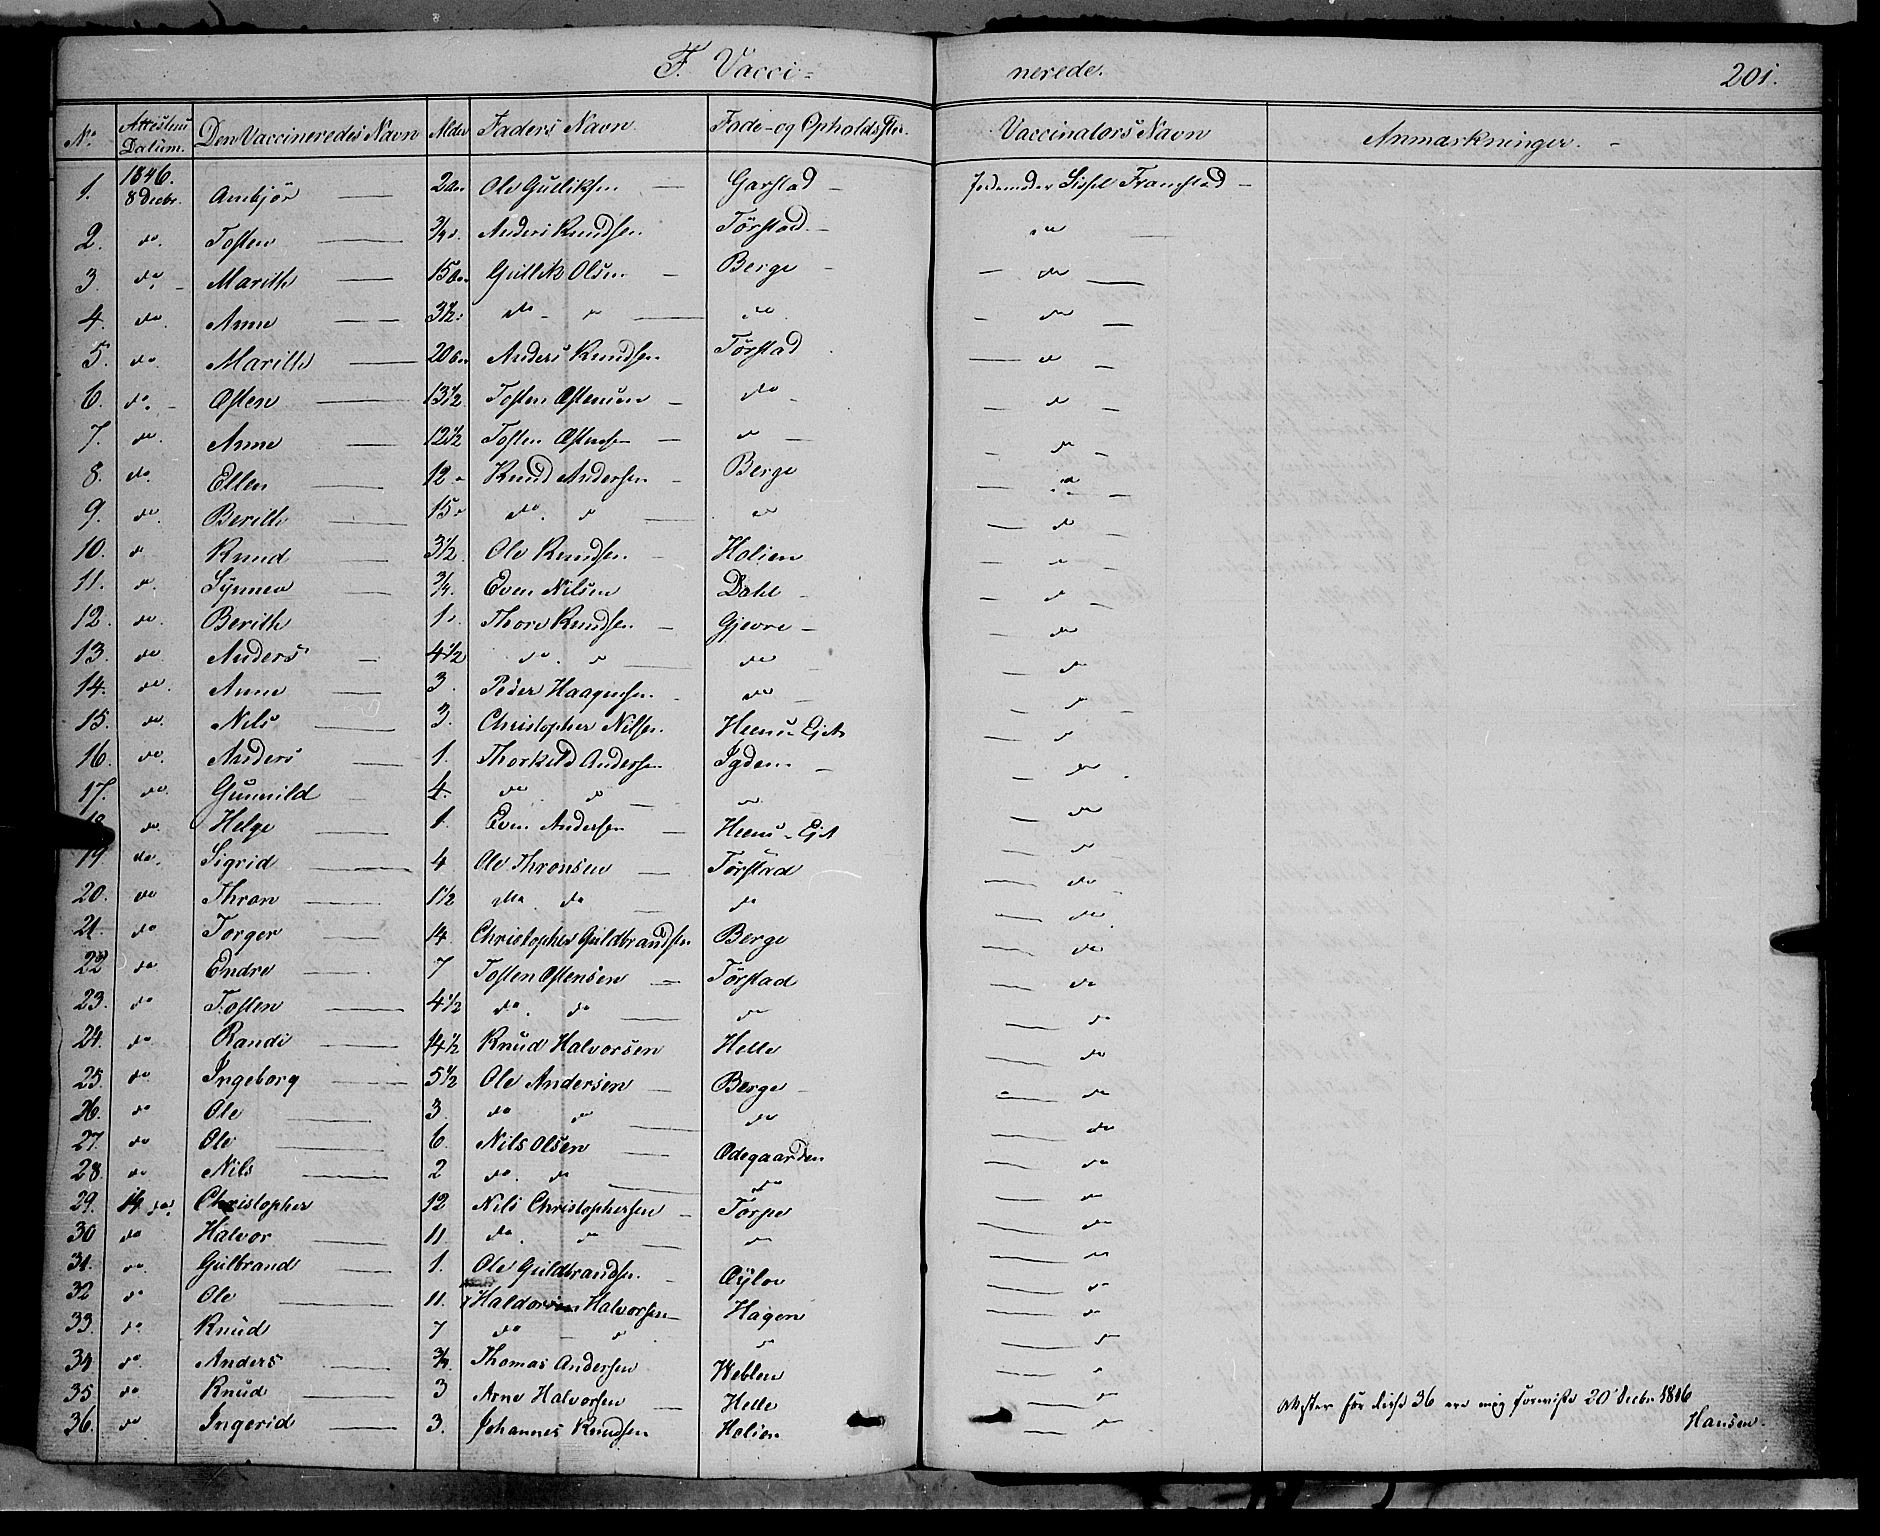 F. Vacci= nerede. 201.
No Attestens Datum. Den Vaccineredes Navn Alder Faders Navn. Føde- og Opholds Vaccinators Navn Anmærkninger.
1. 1846. 8 Decbr. Ambjør 2 Ole Gulliksen Garstad Sissel
2. do. Tosten 3/4 Anders Knudsen Tørstad do
3. do. Marith 15 Gullik Olsen Berge do
4. do. Anne 3½ do do do do
5. do. Marith 20 Anders Knudsen Tørstad do
6. do. Østen 13½ Tosten Østensen do do
7. do. Anne 12½ Tosten Østensen do do
8. do. Ellen 12 Knud Andersen Berge do
9. do. Berith 15 do. do do do
10. do Knud 3½ Ole Knudsen Holien do
11. do. Synnev 3/4 Even Nilsen Dahl do
12. do. Berith 1. Thore Knudsen Gjevre do
13. do. Anders 4½ do. do do do
14. do. Anne 3. Peder Haagensen do do
15. do. Nils 3. Christopher Nilsen do
16. do. Anders 1. Thorkild Andersen Igdem do
17. do. Gunnild 4. do do do do
18 do. Helge 1. Even Andersen do
19 do. Sigrid 4 Ole Thronsen Tørstad do
20. do Thron 1½ do. do do do
21. do Torger 14. Christopher Guldbrandsen Berge do
22 do Endre 7 Tosten Østensen Tørstad do
23. do Tosten 4½ do. do do do
24. do Randi 14½ Knud Halvorsen Helle do
25. do Ingeborg 5½ Ole Andersen Berge do
26. do Ole 3. do do do do
27. do Ole 6. Nils Olsen Ødegaarden do
28. do Nils 2 do. do do do
29. 14 do. Christopher 12 Nils Christophersen Torpe do
30 do Halvor 11 do. do do do
31. do. Gulbrand 1. Ole Guldbrandsen Øyloe do
32 do Ole 11. Halvorsen Hagen do
33. do. Knud 7 do do do do
34 do. Anders 3/4 Thomas Andersen Weblen do
35. do Knud 3 Arne Halvorsen Helle do
36. do Ingerid 3. Johannes Knudsen Holien do
Attester for disse 36 ere mig foreviste 20 Decbr 1846
Hansen.